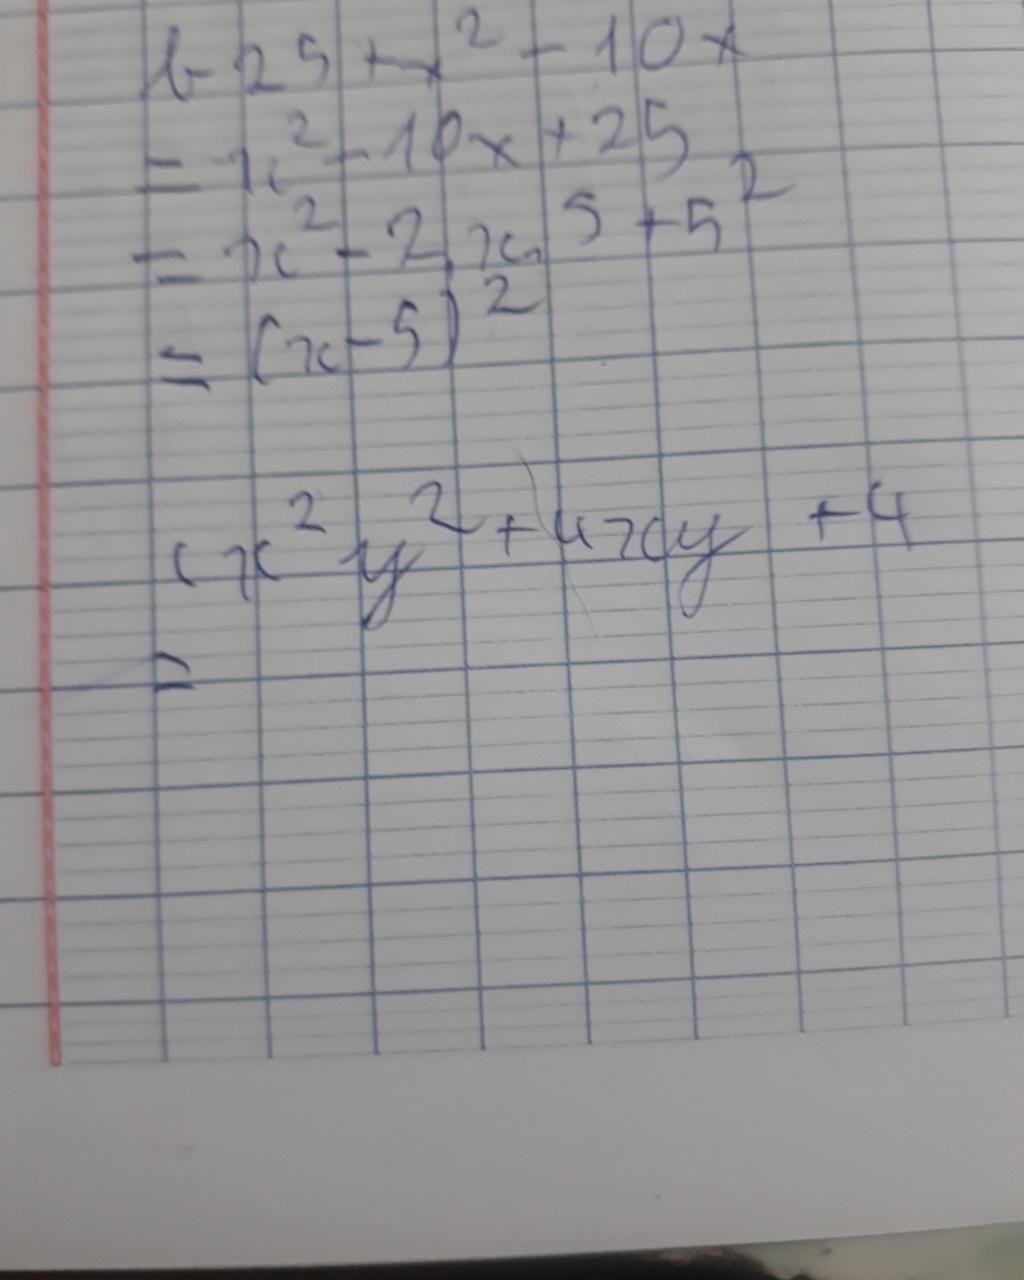 b 25 + x² - 10x
= x² - 10x + 25
= x² - 2.x.5 + 5²
= (x - 5)²
c x² y² + 4xy + 4
=